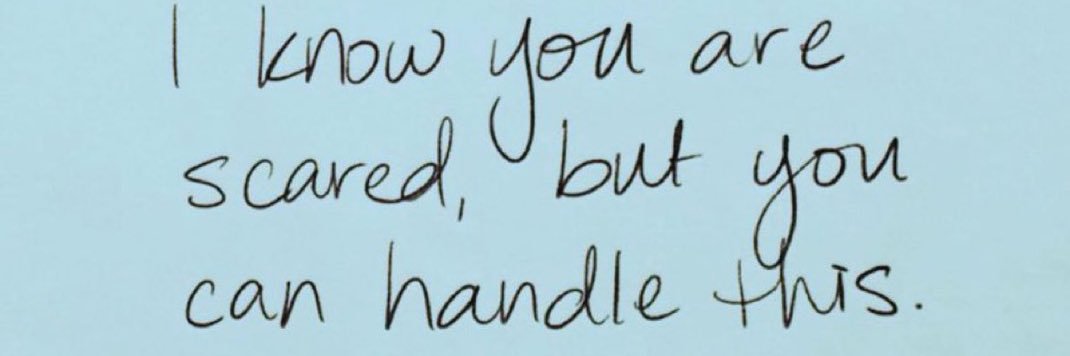 I know you are
scared, but you
can handle this.